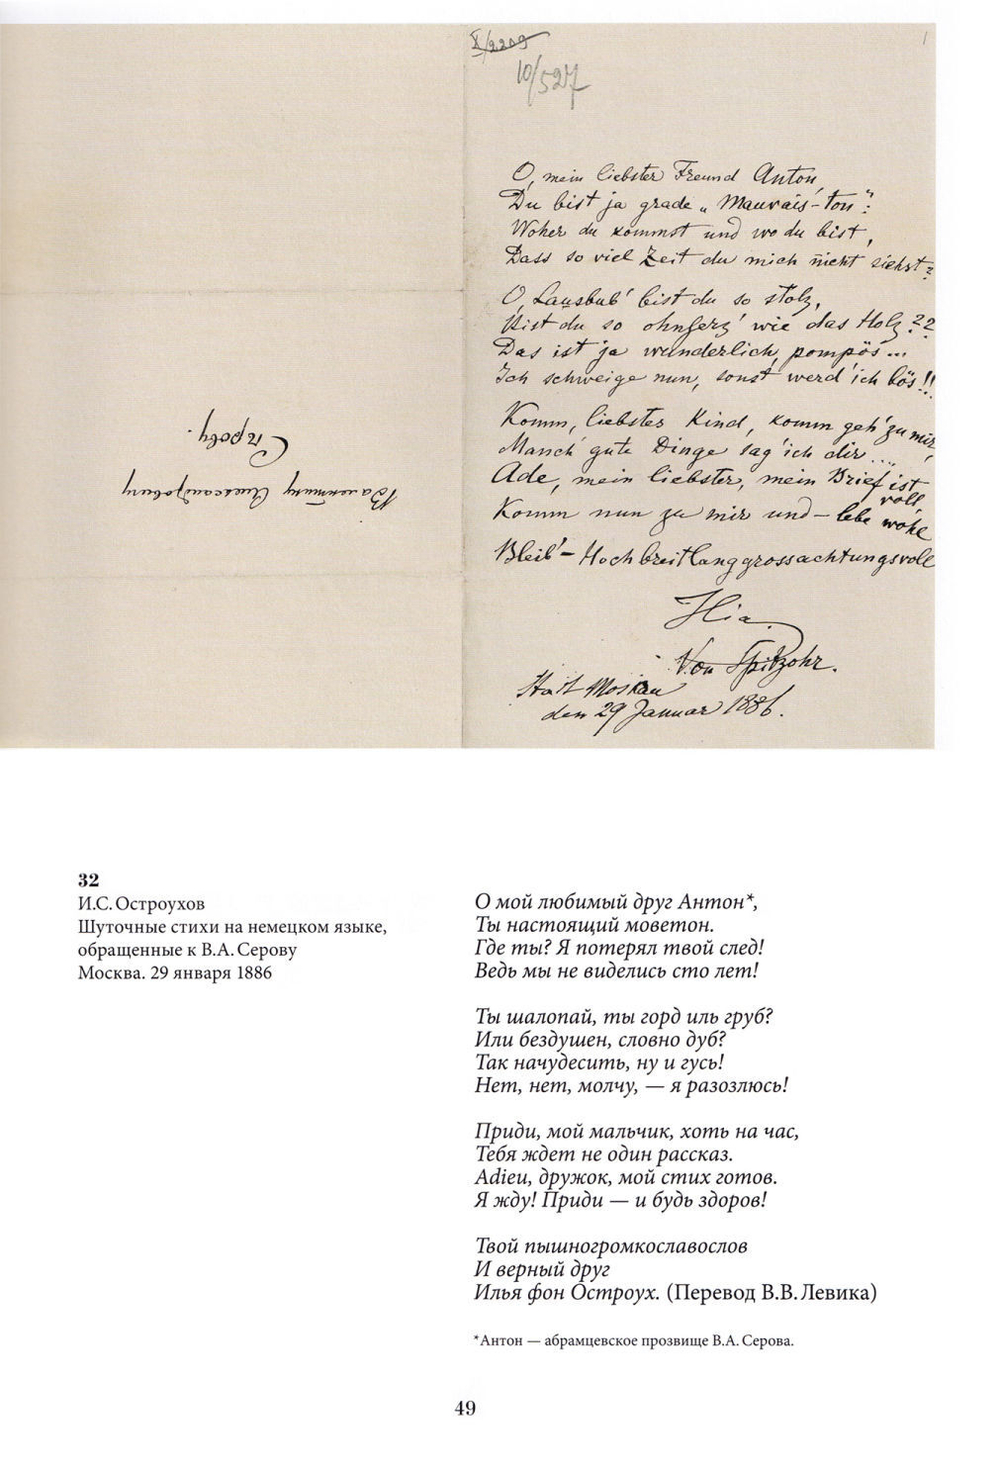 X/2209
10/527
1
O, mein liebster Freund Anton,
Du bist ja grade „Mauvais-ton":
Woher du kommst und wo du bist,
Dass so viel Zeit du mich nicht siehst?
O, Lausbub' bist du so stolz,
Bist du so ohnherz' wie das Holz??
Das ist ja wunderlich, pompös...
Ich schweige nun, sonst werd' ich bös!!
Komm, liebster Kind, komm geh' zu mir,
Manch' gute Dinge sag' ich dir...
Ade, mein liebster, mein Brief ist voll,
Komm nun zu mir und – lebe wohl
Bleib' – Hochbreitlanggrossachtungsvoll
Ilia
Von Spitzohr.
Stadt Moskau
den 29 Januar 1886.
Валентину Александровичу
Серову.
32
И.С. Остроухов
Шуточные стихи на немецком языке,
обращенные к В.А. Серову
Москва. 29 января 1886
О мой любимый друг Антон*,
Ты настоящий моветон.
Где ты? Я потерял твой след!
Ведь мы не виделись сто лет!
Ты шалопай, ты горд иль груб?
Или бездушен, словно дуб?
Так начудесить, ну и гусь!
Нет, нет, молчу, — я разозлюсь!
Приди, мой мальчик, хоть на час,
Тебя ждет не один рассказ.
Adieu, дружок, мой стих готов.
Я жду! Приди — и будь здоров!
Твой пышногромкославослов
И верный друг
Илья фон Остроух. (Перевод В.В. Левика)
*Антон — абрамцевское прозвище В.А. Серова.
49